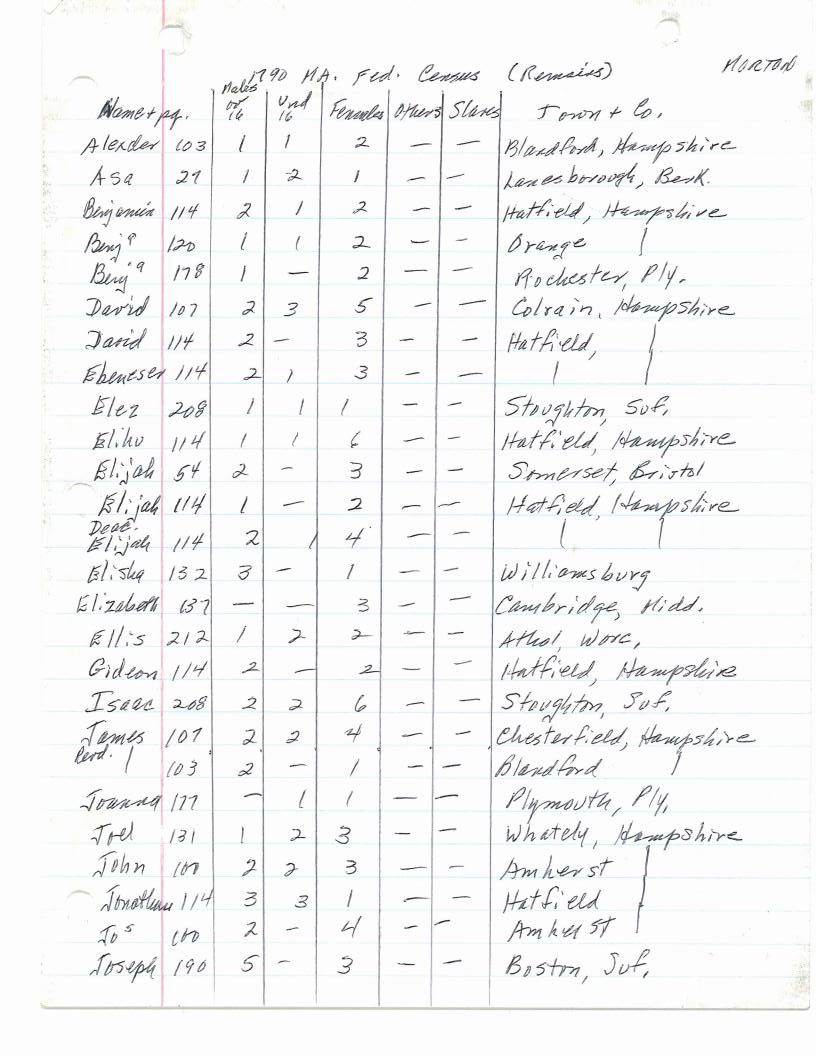 1790 MA. Fed. Census (Remains) MORTON
Name + pg. Males ov 16 Und 16 Females Others Slaves Town + Co.
Alexder 103 1 1 2 — — Blandford, Hampshire
Asa 27 1 2 1 — — Lanesborough, Berk.
Benjamin 114 2 1 2 — — Hatfield, Hampshire
Benjª 120 1 1 2 — — Orange |
Benjª 178 1 — 2 — — Rochester, Ply.
David 107 2 3 5 — — Colrain, Hampshire
David 114 2 — 3 — — Hatfield, |
Ebeneser 114 2 1 3 — — | |
Elez 208 1 1 1 — — Stoughton, Suf.
Elihu 114 1 1 6 — — Hatfield, Hampshire
Elijah 54 2 — 3 — — Somerset, Bristol
Elijah 114 1 — 2 — — Hatfield, Hampshire
Deac.
Elijah 114 2 1 4 — — | |
Elisha 132 3 — 1 — — Williamsburg
Elizabeth 137 — — 3 — — Cambridge, Midd.
Ellis 212 1 2 2 — — Athol, Worc.
Gideon 114 2 — 2 — — Hatfield, Hampshire
Isaac 208 2 2 6 — — Stoughton, Suf.
James 107 2 2 4 — — Chesterfield, Hampshire
Revd. | 103 2 — 1 — — Blandford |
Joanna 177 — 1 1 — — Plymouth, Ply.
Joel 131 1 2 3 — — Whately, Hampshire
John 100 2 2 3 — — Amherst |
Jonathan 114 3 3 1 — — Hatfield |
Joˢ 100 2 — 4 — — Amherst |
Joseph 190 5 — 3 — — Boston, Suf.